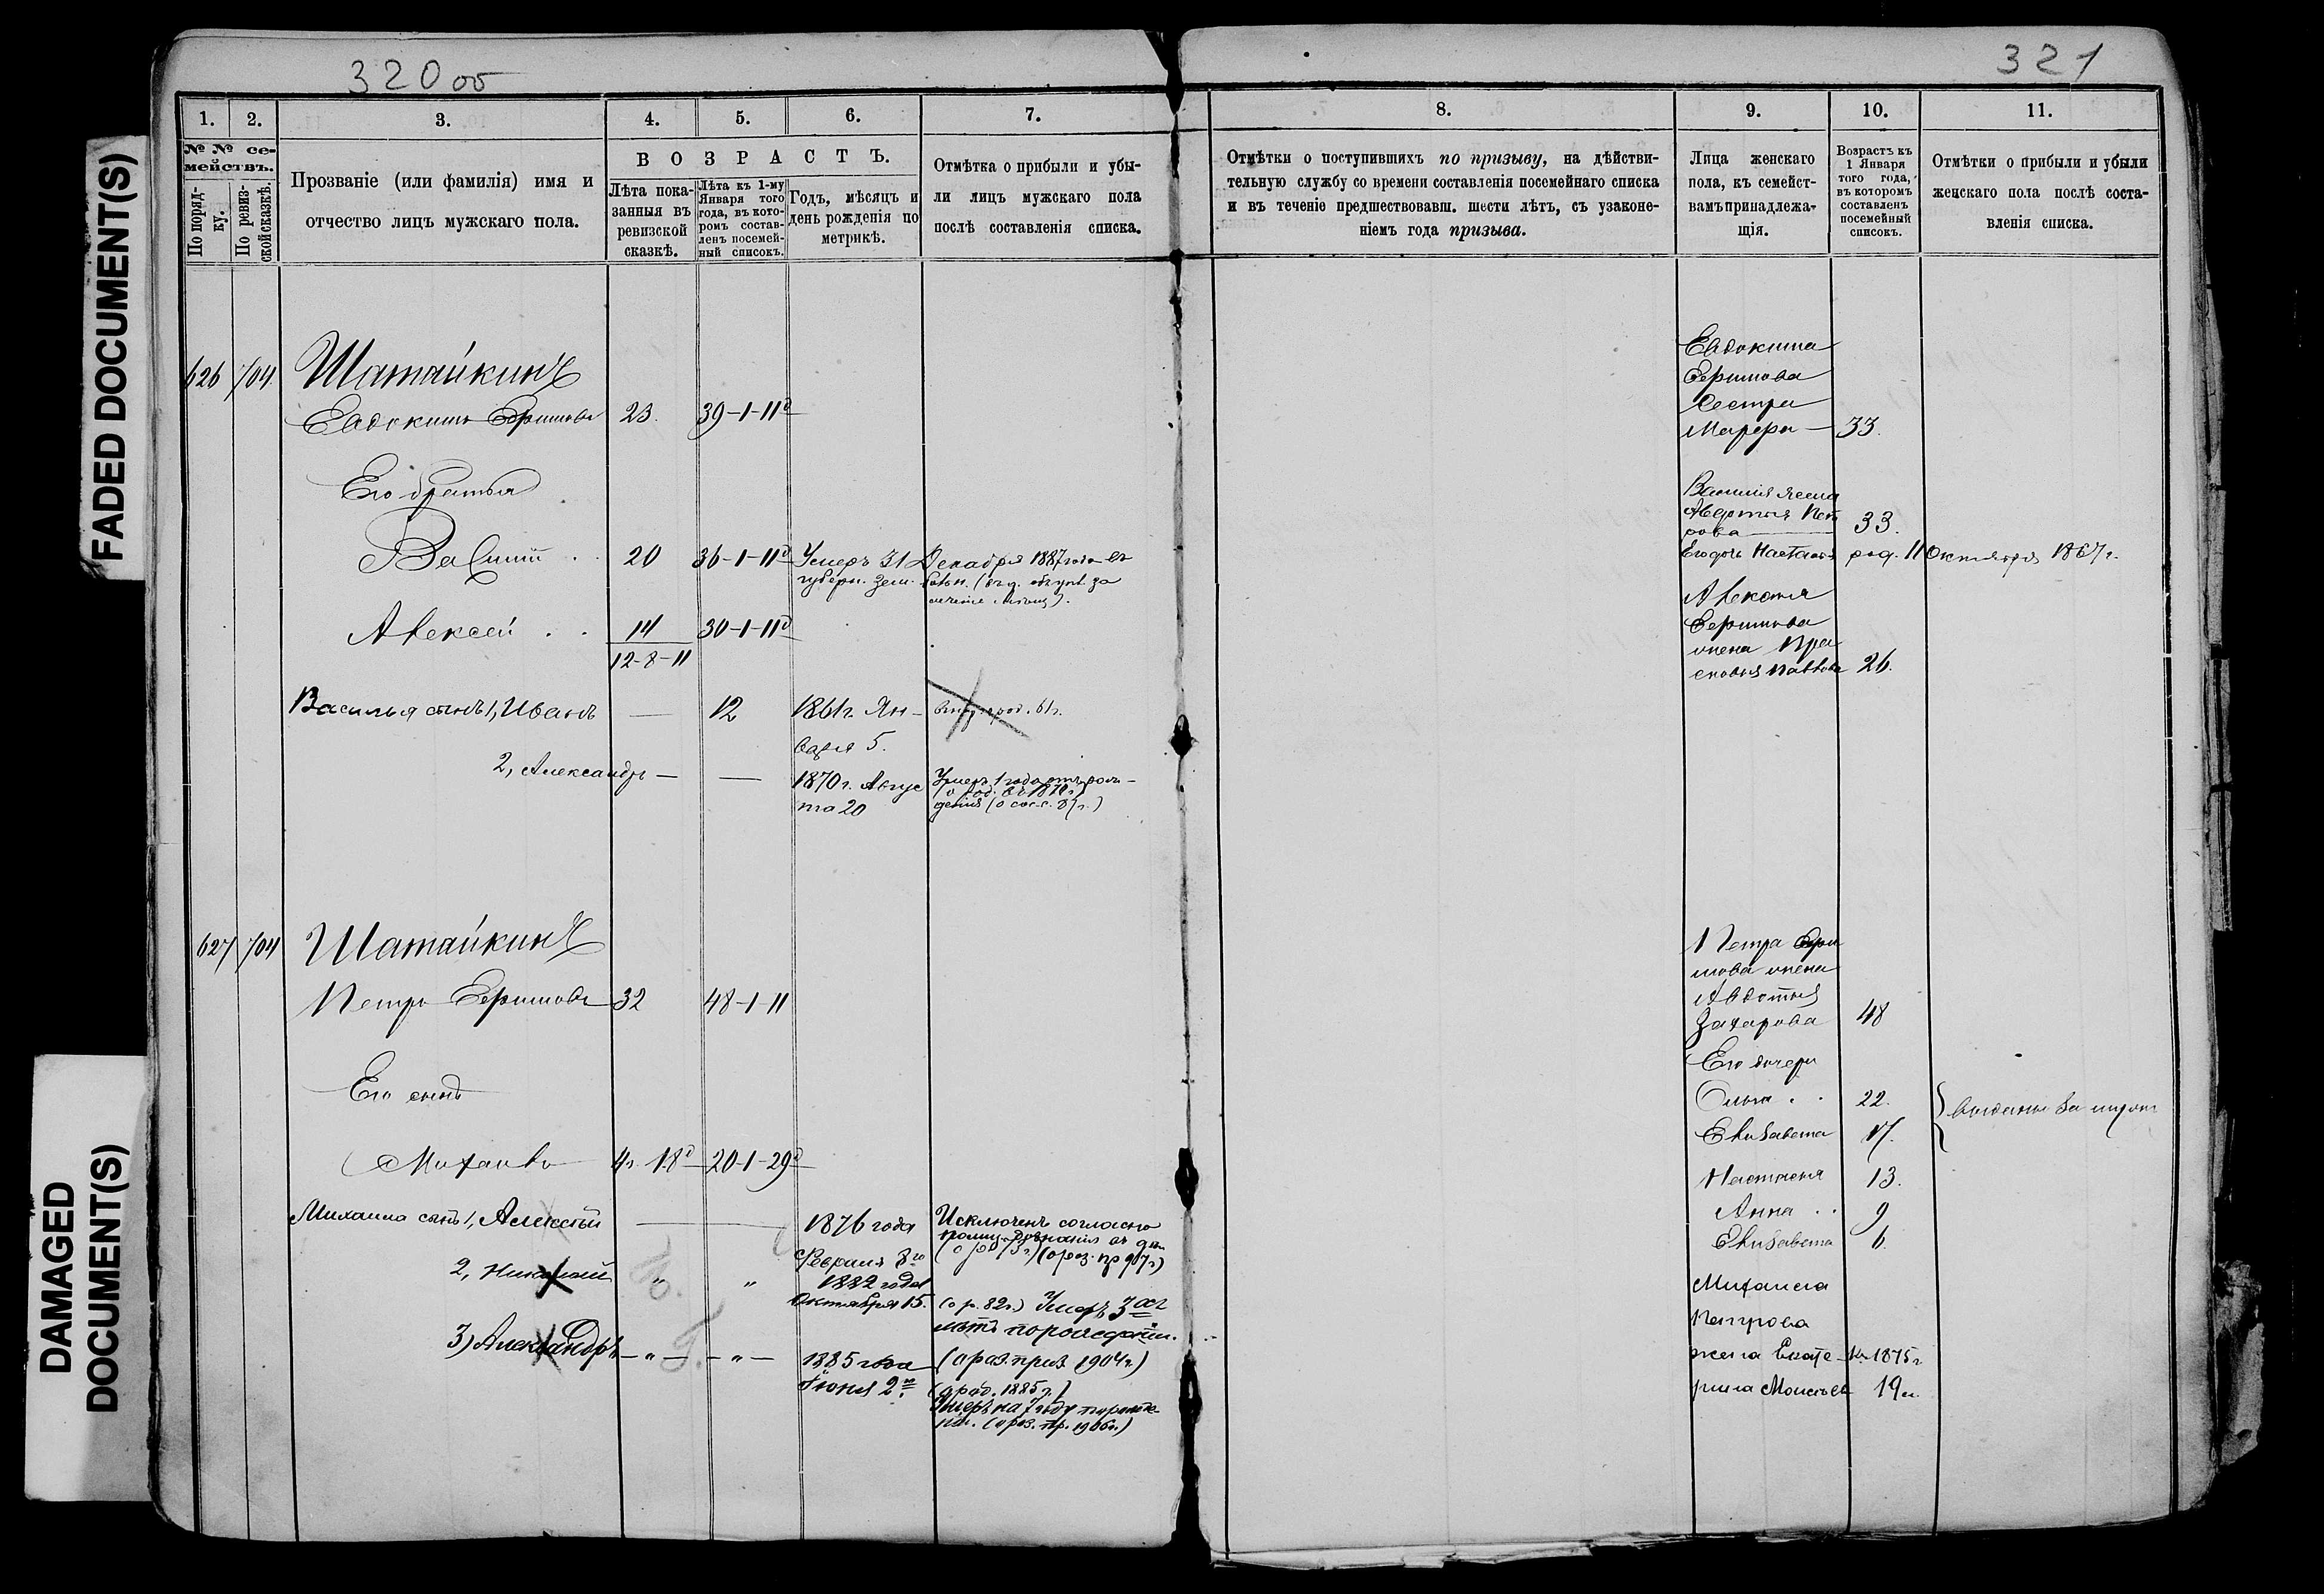 320 об
321
FADED DOCUMENT(S)
DAMAGED
DOCUMENT(S)
1. 2. 3. 4. 5. 6. 7.
№ № се-
мействъ.
По поряд-
ку.
По ревиз-
ской сказкѣ.
Прозваніе (или фамилія) имя и
отчество лицъ мужскаго пола.
ВОЗРАСТЪ.
Лѣта пока-
занныя въ
ревизской
сказкѣ.
Лѣта къ 1-му
Января того
года, въ кото-
ромъ состав-
ленъ посемей-
ный списокъ.
Годъ, мѣсяцъ и
день рожденія по
метрикѣ.
Отмѣтка о прибыли и убы-
ли лицъ мужскаго пола
послѣ составленія списка.
626 704 Шатайкинъ
Евдокимъ Ефимовъ 23. 39-1-11д
Его братья
Василій 20 36-1-11д Умеръ 31 Декабря 1887 года въ
губерн. зем.
Алексей 14 30-1-11д
12-8-11
Василья сынъ 1, Иванъ — 12 1861 г. Ян-
варя 5.
2, Александръ — — 1870 г. Авгус
та 20
Умеръ 1 года отъ рож-
денія
627 704 Шатайкинъ
Петръ Ефимовъ 32 48-1-11
Его сынъ
Михаилъ 4г. 18д 20-1-29д
Михаила сынъ 1, Алексѣй 1876 года
Февраля 8го
Исключенъ согласно
2, Николай " " 1882 года
Октября 15.
(о р. 82 г.) Умеръ 3хъ
лѣтъ по рождении.
3) Александръ — " — — " — 1885 года
Іюня 2го
(о раз. приз 1904 г)
(о род. 1885 г.)
Умеръ на году по рожде-
нии. (о раз. пр. 1906 г.)
8. 9. 10. 11.
Отмѣтки о поступившихъ по призыву, на дѣйстви-
тельную службу со времени составленія посемейнаго списка
и въ теченіе предшествовавш. шести лѣтъ, съ узаконе-
ніемъ года призыва.
Лица женскаго
пола, къ семейст-
вамъ принадлежа-
щія.
Возрастъ къ
1 Января
того года,
въ которомъ
составленъ
посемейный
списокъ.
Отмѣтки о прибыли и убыли
женскаго пола послѣ соста-
вленія списка.
Евдокима
Ефимова
Сестра
Марфа — 33.
Василія жена
Авдотья Пет
рова 33.
Его дочь Настасья род. 11 Октября 1867 г.
Алексея
Ефимова
жена Пра
сковья Павлова 26.
Петра Ефи
мова жена
Авдотья
Захарова 48
Его дочери
Ольга 22.
Елизавета 17.
Выданы въ замуж
Настасья 13.
Анна 9
Елизавета 6
Михаила
Петрова
жена Екате-
рина Моисеев 19 л.
1875 г